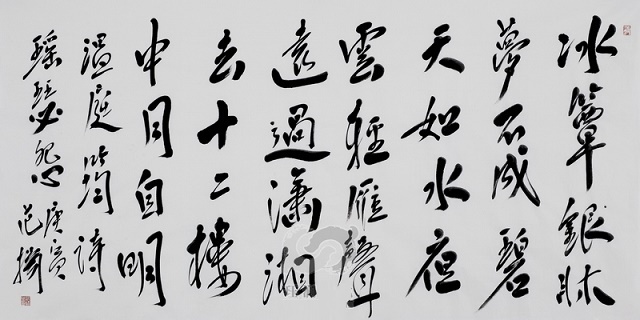 冰簟銀牀
夢不成碧
天如水夜
雲輕雁聲
遠過瀟湘
去十二樓
中月自明
溫庭筠詩
瑤瑟怨
庚寅